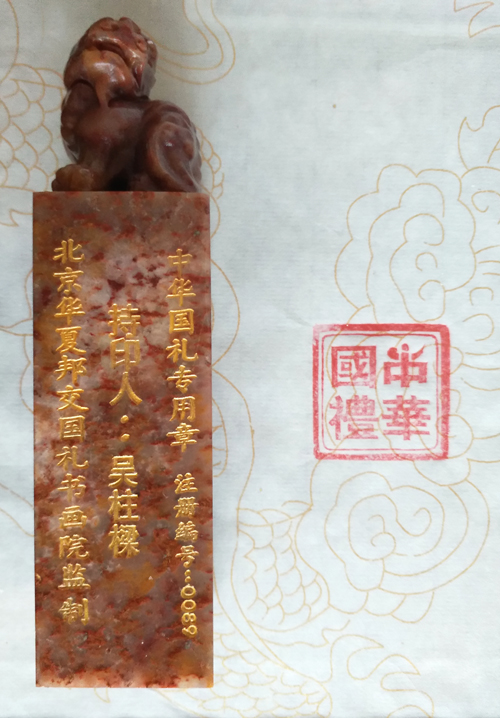 中华国礼专用章 注册编号:0089
持印人:吴柱樑
北京华夏邦交国礼书画院监制
中華
國禮